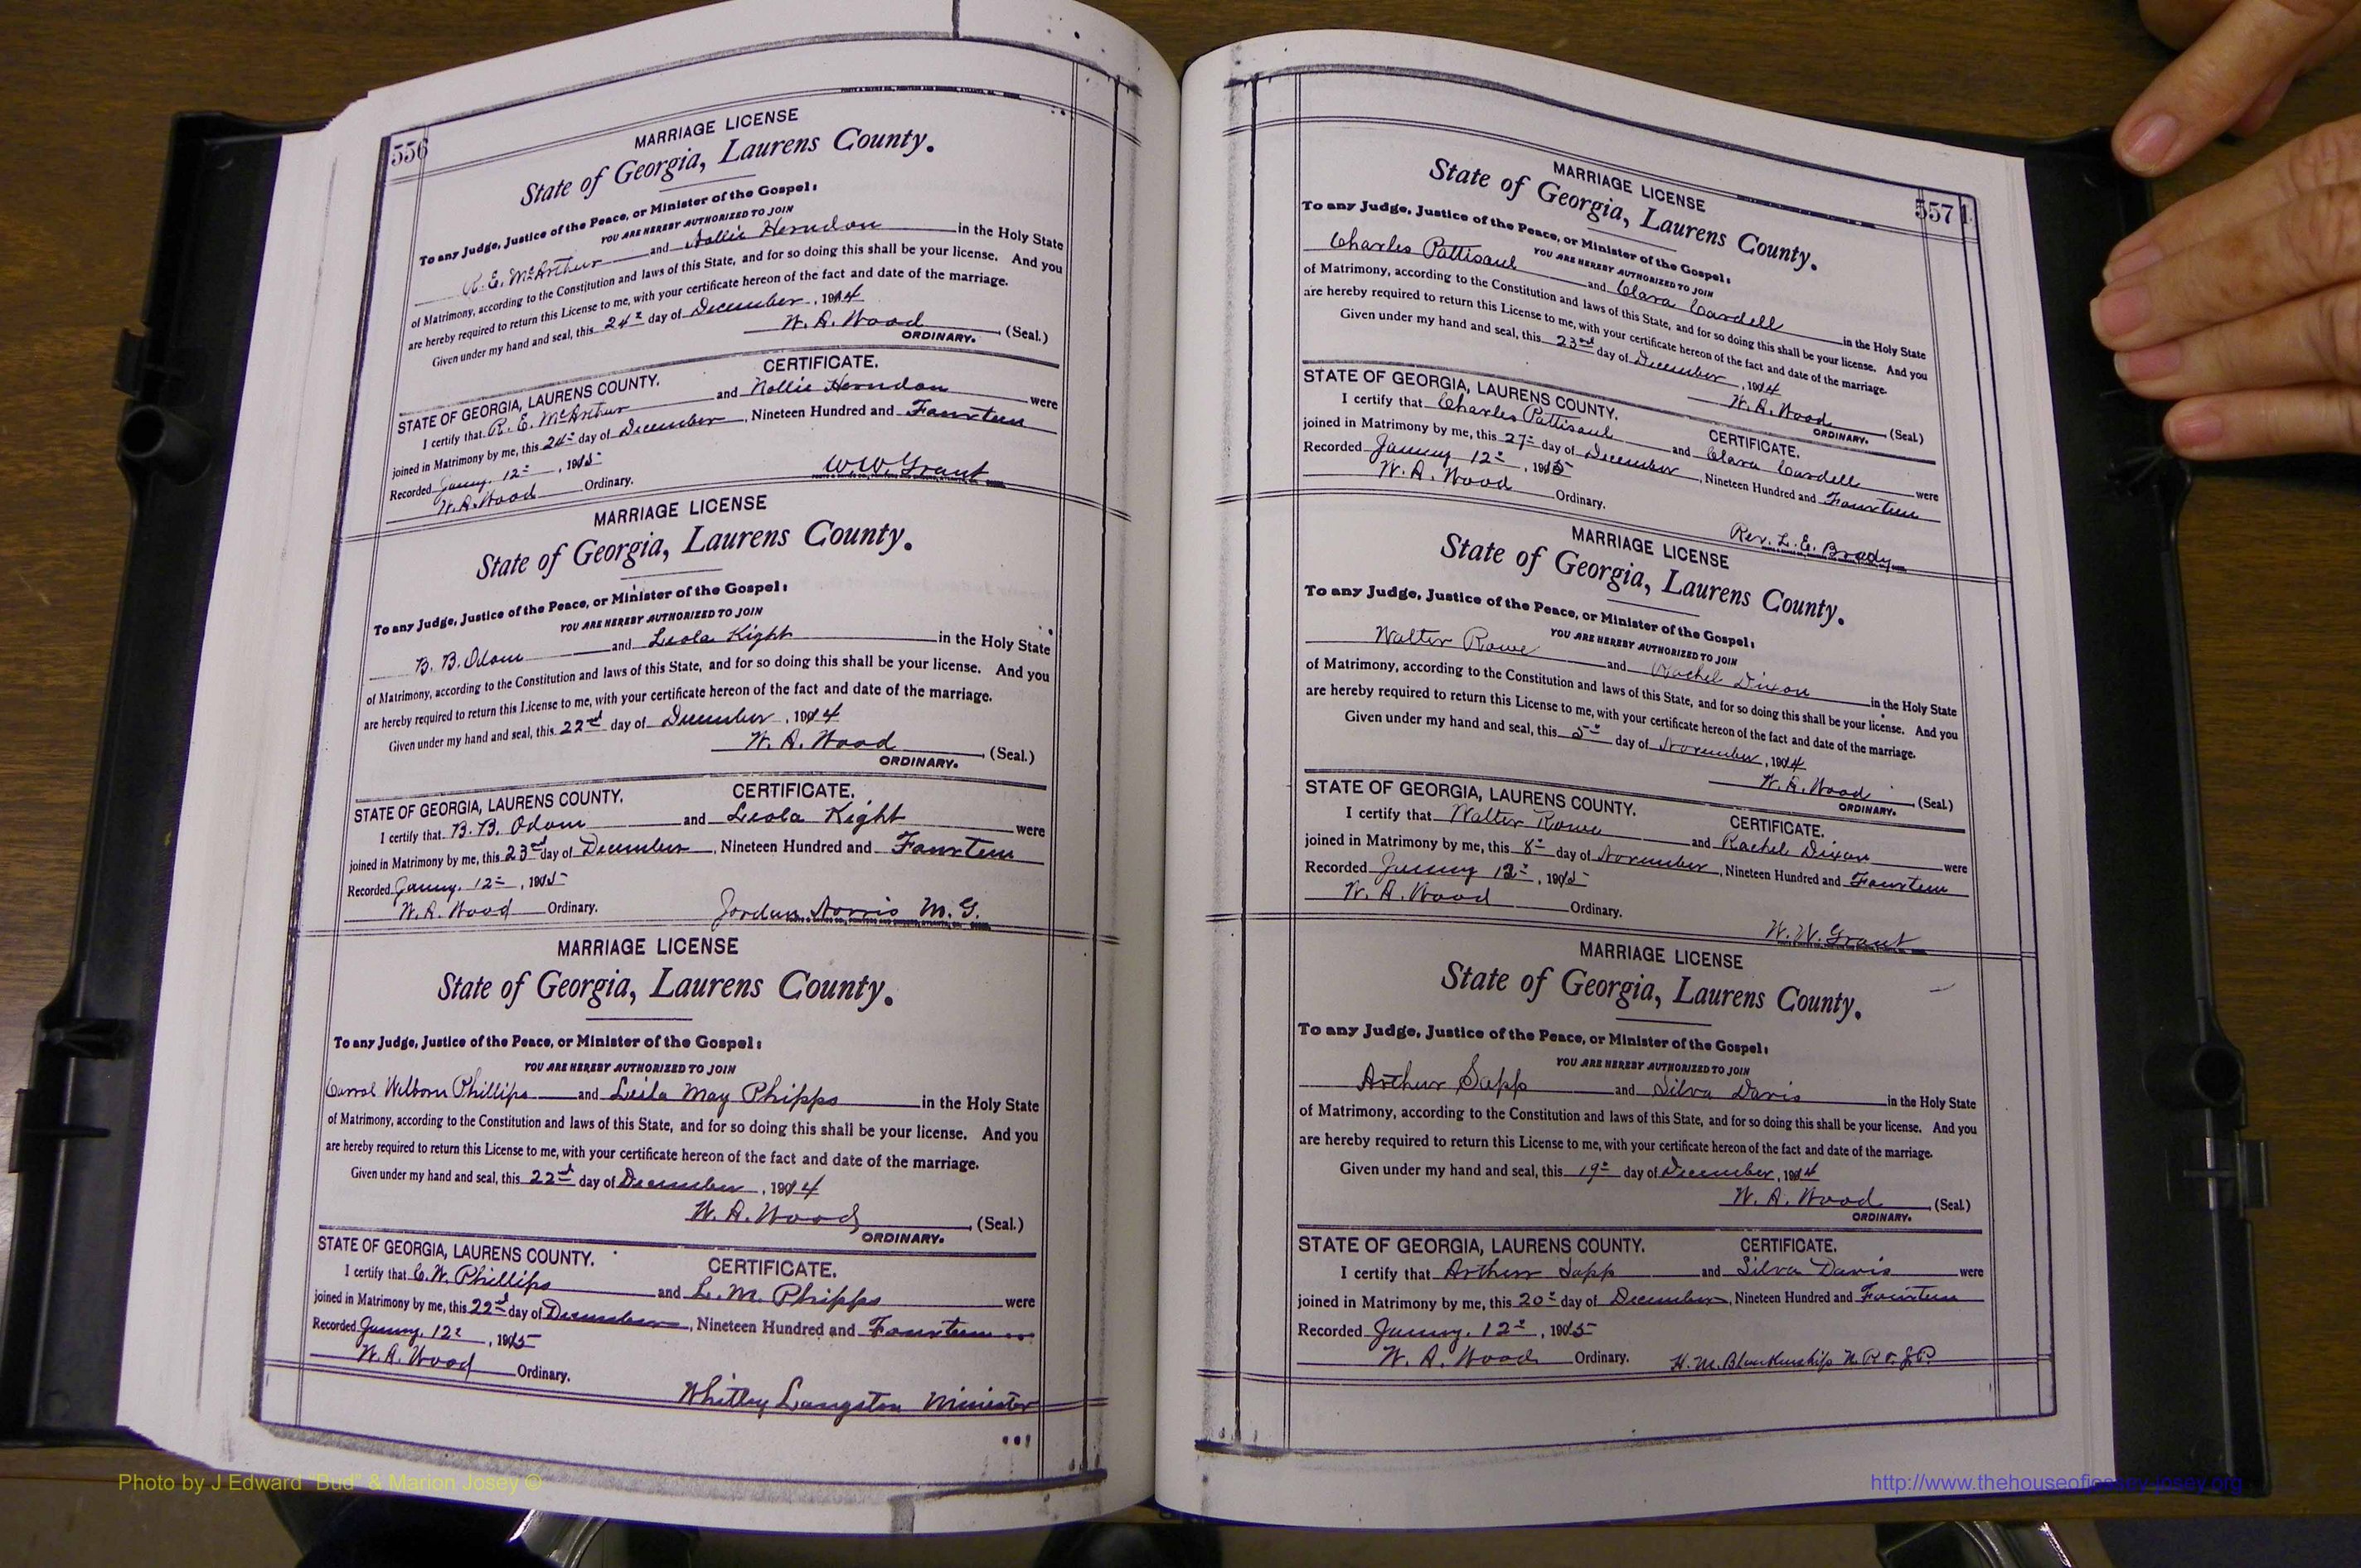 556
MARRIAGE LICENSE
State of Georgia, Laurens County.
To any Judge, Justice of the Peace, or Minister of the Gospel:
YOU ARE HEREBY AUTHORIZED TO JOIN
R. E. McArthur and Nollie Herndon in the Holy State
of Matrimony, according to the Constitution and laws of this State, and for so doing this shall be your license. And you
are hereby required to return this License to me, with your certificate hereon of the fact and date of the marriage.
Given under my hand and seal, this 24th day of December, 1914
W. A. Wood (Seal.)
ORDINARY.
STATE OF GEORGIA, LAURENS COUNTY. CERTIFICATE.
I certify that R. E. McArthur and Nollie Herndon were
joined in Matrimony by me, this 24th day of December, Nineteen Hundred and Fourteen
Recorded Jany. 12th, 1915
W. A. Wood Ordinary. W W Grant
MARRIAGE LICENSE
State of Georgia, Laurens County.
To any Judge, Justice of the Peace, or Minister of the Gospel:
YOU ARE HEREBY AUTHORIZED TO JOIN
B. B. Odom and Leola Kight in the Holy State
of Matrimony, according to the Constitution and laws of this State, and for so doing this shall be your license. And you
are hereby required to return this License to me, with your certificate hereon of the fact and date of the marriage.
Given under my hand and seal, this 22nd day of December, 1914
W. A. Wood (Seal.)
ORDINARY.
STATE OF GEORGIA, LAURENS COUNTY. CERTIFICATE.
I certify that B. B. Odom and Leola Kight were
joined in Matrimony by me, this 23rd day of December, Nineteen Hundred and Fourteen
Recorded Jany. 12th, 1915
W. A. Wood Ordinary. Jordan Norris M. G.
MARRIAGE LICENSE
State of Georgia, Laurens County.
To any Judge, Justice of the Peace, or Minister of the Gospel:
YOU ARE HEREBY AUTHORIZED TO JOIN
Carrol Welborn Phillips and Leila May Phipps in the Holy State
of Matrimony, according to the Constitution and laws of this State, and for so doing this shall be your license. And you
are hereby required to return this License to me, with your certificate hereon of the fact and date of the marriage.
Given under my hand and seal, this 22nd day of December, 1914
W. A. Wood (Seal.)
ORDINARY.
STATE OF GEORGIA, LAURENS COUNTY. CERTIFICATE.
I certify that C. W. Phillips and L. M. Phipps were
joined in Matrimony by me, this 22nd day of December, Nineteen Hundred and Fourteen
Recorded Jany. 12th, 1915
W. A. Wood Ordinary.
Whitley Langston Minister
557
MARRIAGE LICENSE
State of Georgia, Laurens County.
To any Judge, Justice of the Peace, or Minister of the Gospel:
YOU ARE HEREBY AUTHORIZED TO JOIN
Charles Pattisaul and Clara Cardell in the Holy State
of Matrimony, according to the Constitution and laws of this State, and for so doing this shall be your license. And you
are hereby required to return this License to me, with your certificate hereon of the fact and date of the marriage.
Given under my hand and seal, this 23rd day of December, 1914
W. A. Wood (Seal.)
ORDINARY.
STATE OF GEORGIA, LAURENS COUNTY. CERTIFICATE.
I certify that Charles Pattisaul and Clara Cardell were
joined in Matrimony by me, this 27th day of December, Nineteen Hundred and Fourteen
Recorded Jany 12th, 1915
W. A. Wood Ordinary.
Rev. L. E. Brady
MARRIAGE LICENSE
State of Georgia, Laurens County.
To any Judge, Justice of the Peace, or Minister of the Gospel:
YOU ARE HEREBY AUTHORIZED TO JOIN
Walter Rowe and Rachel Dixon in the Holy State
of Matrimony, according to the Constitution and laws of this State, and for so doing this shall be your license. And you
are hereby required to return this License to me, with your certificate hereon of the fact and date of the marriage.
Given under my hand and seal, this 5th day of November, 1914
W. A. Wood (Seal.)
ORDINARY.
STATE OF GEORGIA, LAURENS COUNTY. CERTIFICATE.
I certify that Walter Rowe and Rachel Dixon were
joined in Matrimony by me, this 8th day of November, Nineteen Hundred and Fourteen
Recorded Jany 12th, 1915
W. A. Wood Ordinary.
W. W. Grant
MARRIAGE LICENSE
State of Georgia, Laurens County.
To any Judge, Justice of the Peace, or Minister of the Gospel:
YOU ARE HEREBY AUTHORIZED TO JOIN
Arthur Sapp and Silva Davis in the Holy State
of Matrimony, according to the Constitution and laws of this State, and for so doing this shall be your license. And you
are hereby required to return this License to me, with your certificate hereon of the fact and date of the marriage.
Given under my hand and seal, this 19th day of December, 1914
W. A. Wood (Seal.)
ORDINARY.
STATE OF GEORGIA, LAURENS COUNTY. CERTIFICATE.
I certify that Arthur Sapp and Silva Davis were
joined in Matrimony by me, this 20th day of December, Nineteen Hundred and Fourteen
Recorded Jany. 12th, 1915
W. A. Wood Ordinary. H. M. Blankenship
Photo by J Edward "Bud" & Marion Josey ©